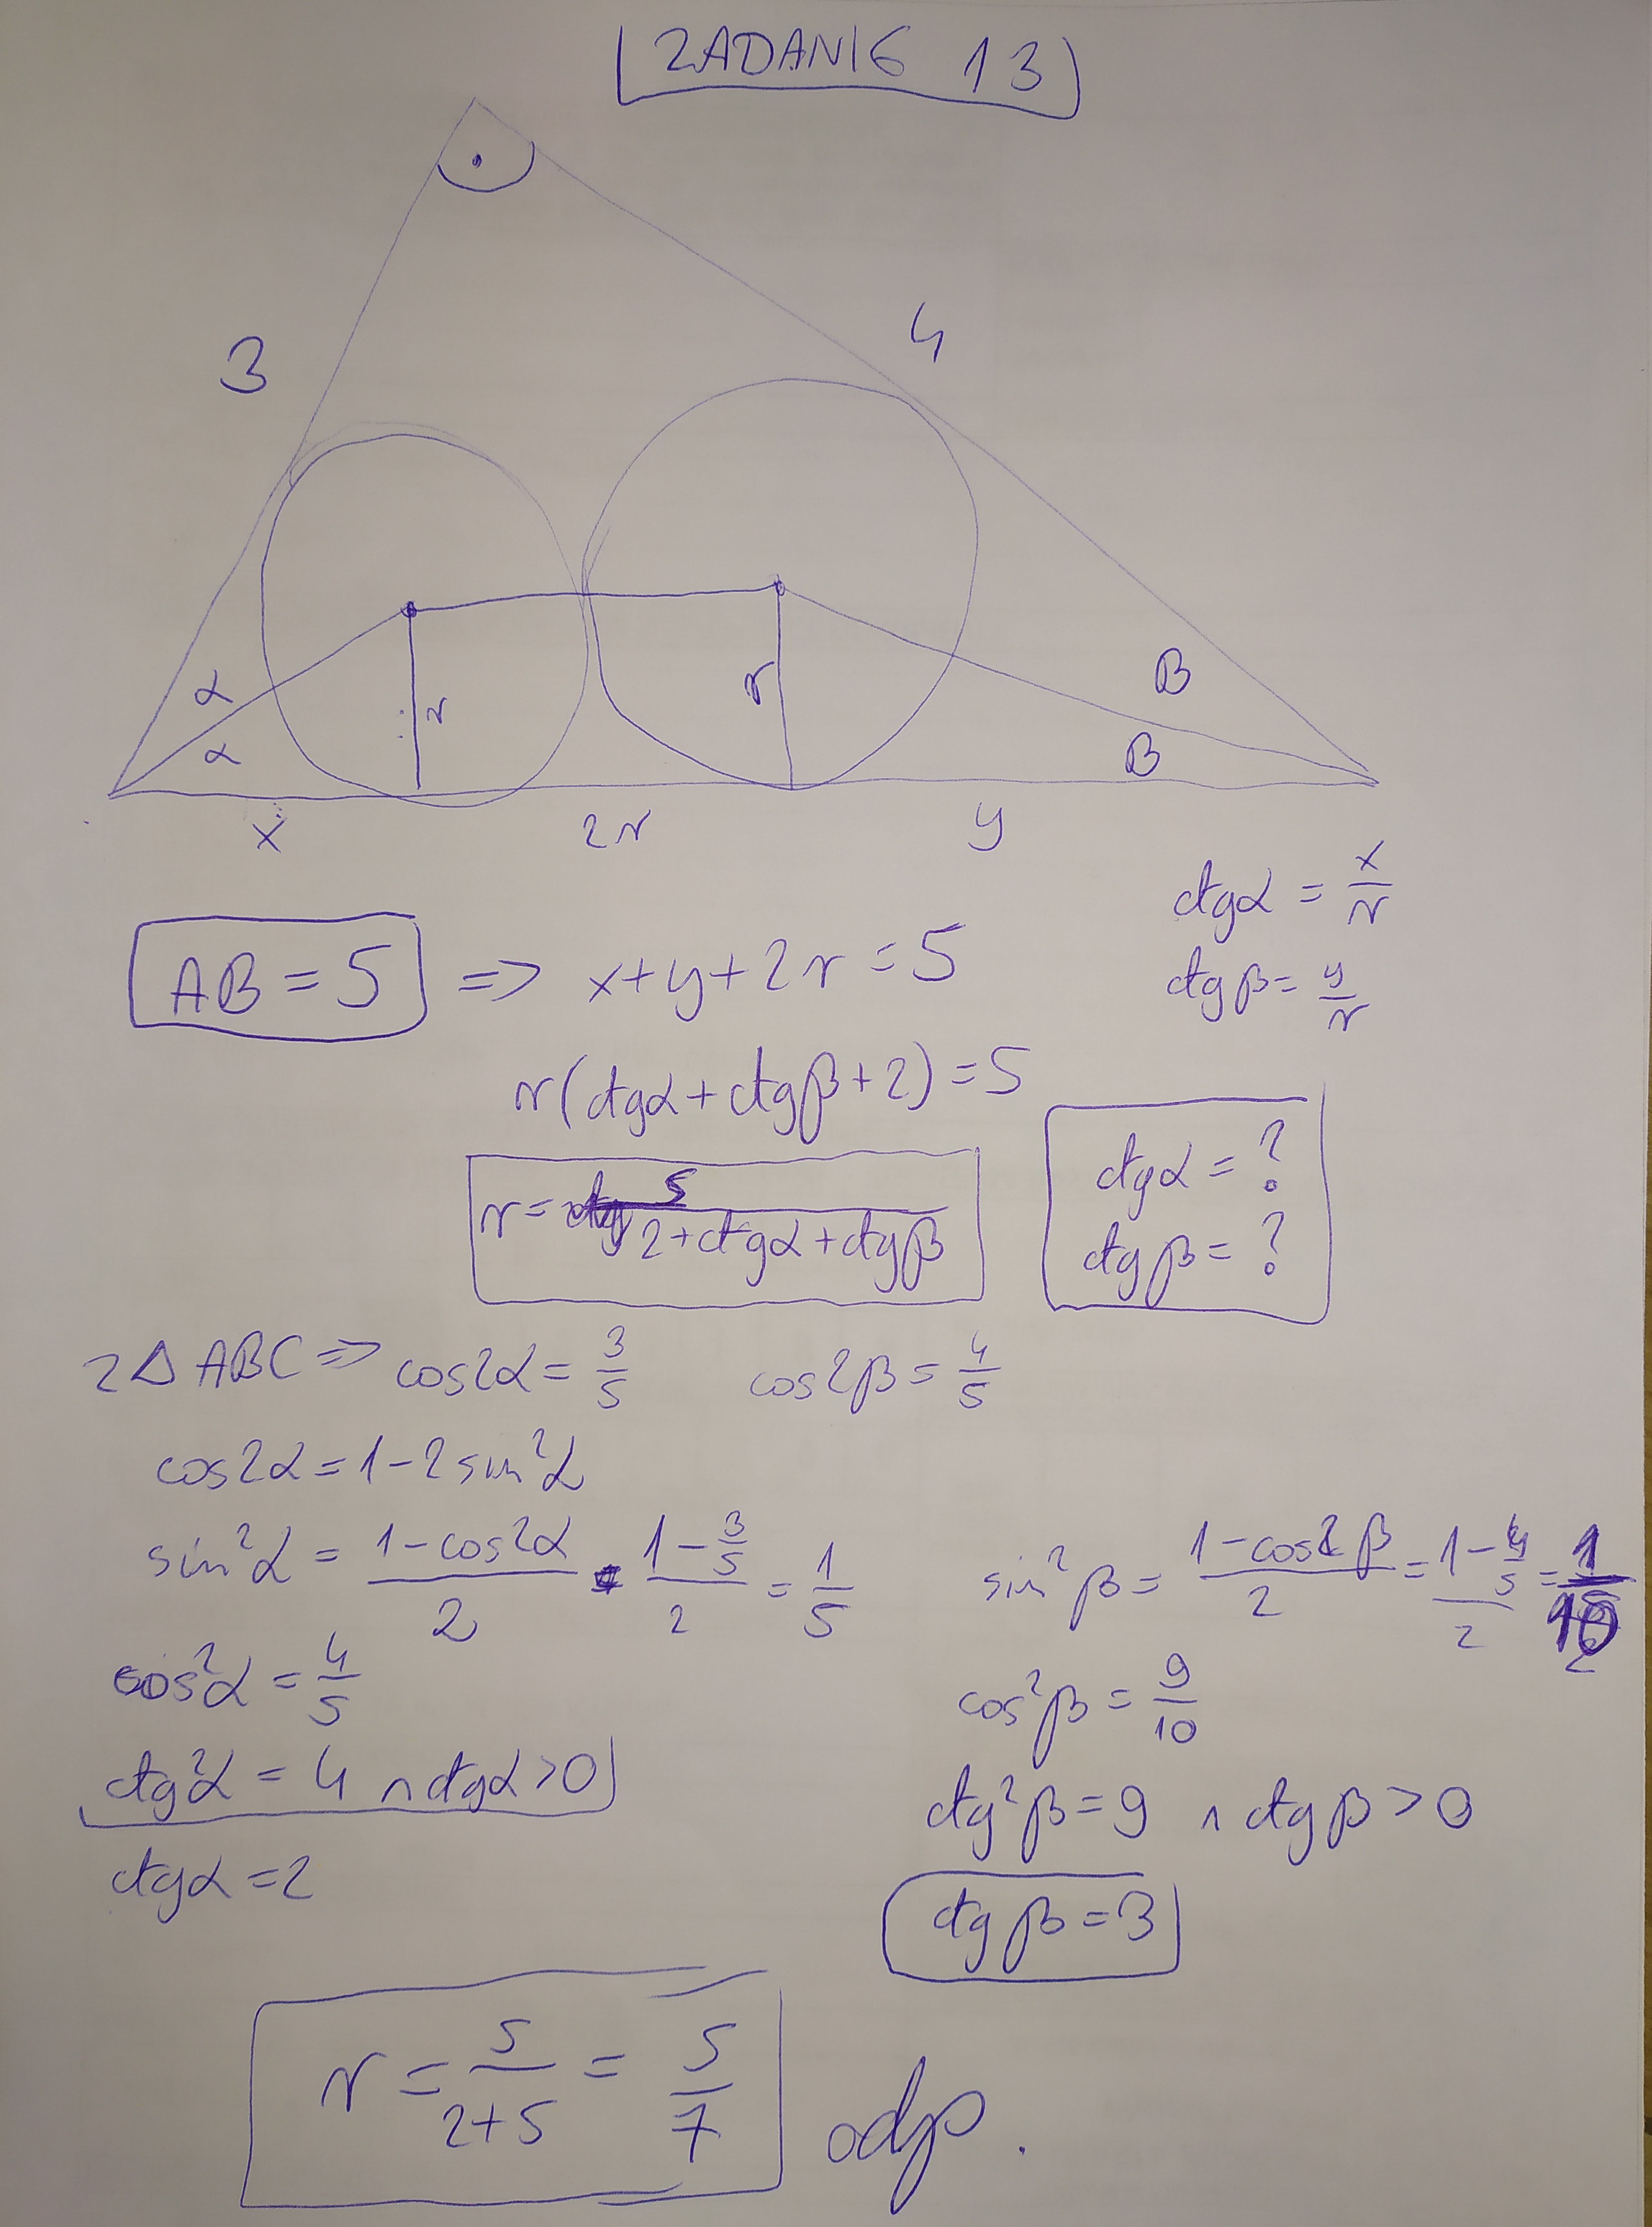 ZADANIE 13
3
4
α
α
r
r
β
β
x
2r
y
ctgα = x/r
ctgβ = y/r
AB = 5 => x+y+2r = 5
r(ctgα + ctgβ + 2) = 5
r = 5/(2+ctgα+ctgβ)
ctgα = ?
ctgβ = ?
z △ ABC => cos2α = 3/5 cos2β = 4/5
cos2α = 1-2sin²α
sin²α = (1-cos2α)/2 = (1-3/5)/2 = 1/5
sin²β = (1-cos2β)/2 = (1-4/5)/2 = 1/10
cos²α = 4/5
cos²β = 9/10
ctg²α = 4 ∧ ctgα > 0
ctg²β = 9 ∧ ctgβ > 0
ctgα = 2
ctgβ = 3
r = 5/(2+5) = 5/7 odp.